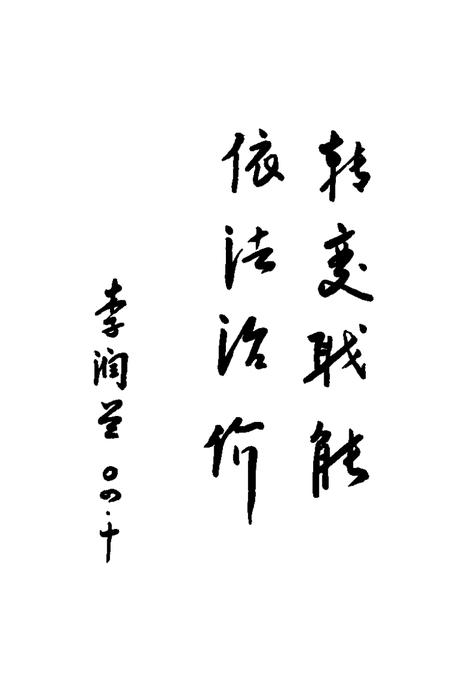 转变职能
依法治价
李润兰 〇四·十